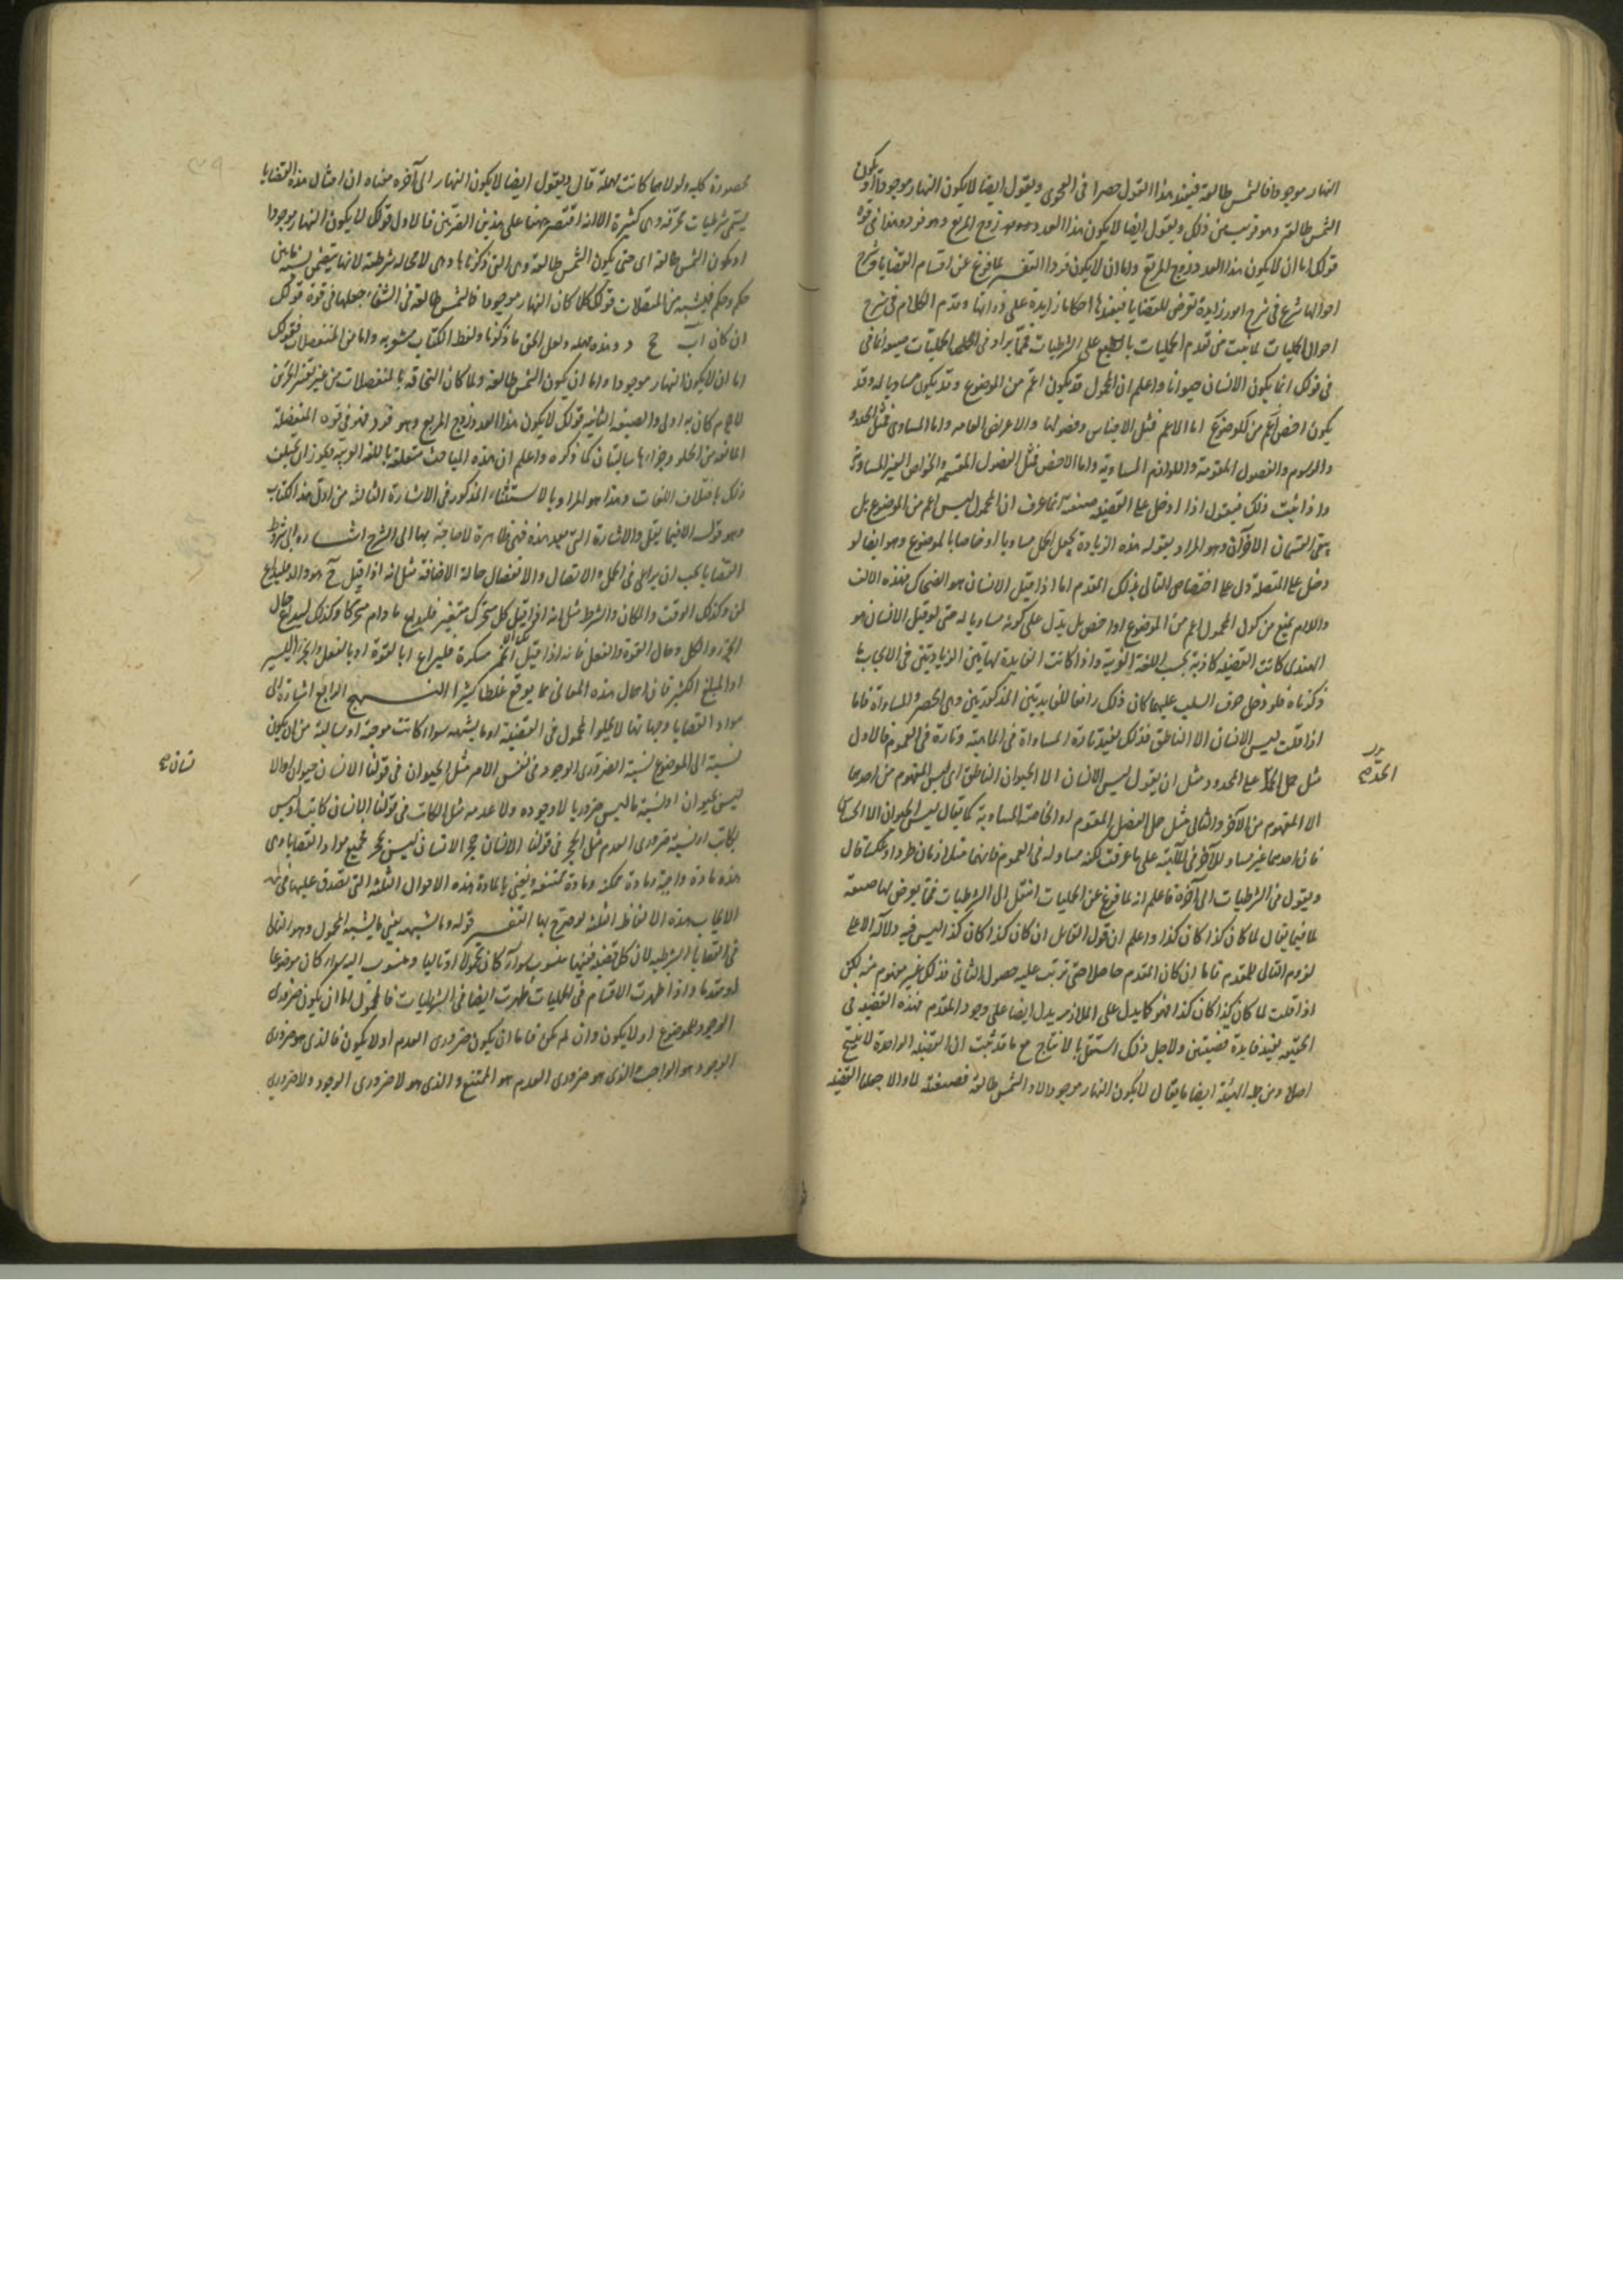 النهار موجودا فالشمس طالعة فيفيد هذا القول حصرا في الفحوى ويقول ايضا لا يكون النهار موجودا او يكون
الشمس طالعة وهو قريب من ذلك ويقول ايضا لا يكون هذا العدد زوج المربع وهو فرد وهذا في قوة
قولك اما ان لا يكون هذا العدد زوج المربع واما ان لا يكون فردا التفسير لما فرغ عن اقسام القضايا وشرح
احوالها شرع في شرح امور زايدة تعرض للقضايا فيفيدها احكاما زايدة على ذواتها وقدم الكلام في شرح
احوال الحمليات لما ثبت من تقدم الحمليات بالطبع على الشرطيات فمما يزاد في الحمليات صيغة انما في
في قولك انما يكون الانسان حيوانا واعلم ان المحمول قد يكون اعم من الموضوع وقد يكون مساويا له وقد
يكون اخص من الموضوع اما الاعم فمثل الاجناس وفصولها والاعراض العامه واما المساوى فمثل الحدود
والرسوم والفصول المقومة واللوازم المساوية واما الاخص فمثل الفصول المقسمه والخواص الغير المساوية
واذا ثبت ذلك فيقول اذا ادخل على القضيه صيغة انما عرف ان المحمول ليس اعم من الموضوع بل
يبقى القسمان الاخران وهو المراد بقوله هذه الزيادة يجعل الحمل مساويا او خاصا بالموضوع وهو ايضا لو
دخل على المتصلة دل على اختصاص التالى بذلك المقدم اما اذا قيل الانسان هو الضحاك فهذه الالف
واللام يمنع من كون المحمول اعم من الموضوع او اخص بل يدل على كونه مساويا له حتى لو قيل الانسان هو
الهندى كانت القضيه كاذبة بحسب اللغة العربية واذا كانت الفايدة لهاتين الزيادتين في الايجاب ما
ذكرناه فلو دخل حرف السلب عليهما كان ذلك رافعا للفايدتين المذكورتين وهي الحصر والمساواة فاما
اذا قلت ليس الانسان الا الناطق فذلك يفيد تارة المساواة في الماهية وتارة في العموم فالاول
مثل حمل الحد على المحدود مثل ان يقول ليس الانسان الا الحيوان الناطق اى ليس المفهوم من احدهما
الا المفهوم من الآخر والثانى مثل حمل الفصل المقوم او الخاصة المساوية كما يقال ليس الحيوان الا الحساس
فان احدهما غير مساو للآخر في الماهية على ما عرفت لكنه مساو له في العموم فانهما متلازمان طردا وعكسا قال
ويقول في الشرطيات الى آخره فاعلم انه لما فرغ عن الحمليات انتقل الى الشرطيات فمما يعرض لها صيغة
لما فيما يقال لما كان كذا كان كذا واعلم ان قول القائل ان كان كذا كان كذا ليس فيه دلالة الا على
لزوم التالى للمقدم فاما ان كان المقدم حاصلا حتى ترتب عليه حصول الثانى فذلك غير مفهوم منه لكن
اذا قلت لما كان كذا كان كذا فهو كما يدل على الملازمة يدل ايضا على وجود المقدم فهذه القضيه في
الحقيقه يفيد فايدة قضيتين ولاجل ذلك استقل بالانتاج مع ما قد ثبت ان القضيه الواحدة لا ينتج
اصلا ومن جمله الهيئة ايضا ما يقال لا يكون النهار موجودا الا والشمس طالعة فصيغة لا والا جعلا القضيه
الحد صح
محصورة كليه ولولاهما كانت مهملة قال ويقول ايضا لا يكون النهار الى آخره معناه ان امثال هذه القضايا
يسمى شرطيات محرفه وهي كثيرة الا انه اقتصر ههنا على هذين الضربين فالاول قولك لا يكون النهار موجودا
او يكون الشمس طالعة اى حتى يكون الشمس طالعة وهي التى ذكرناها وهي لا محاله شرطيه لانها يتضمن نسبة ما بين
حكم وحكم فيشبه من المتصلات قولك كلما كان النهار موجودا فالشمس طالعة وفي الشفاء جعلها في قوة قولك
ان كان اب ج د وهذه مهمله ولعل الحق ما ذكرنا ولفظ الكتاب مشعر به واما من المنفصلات فقولك
اما ان لا يكون النهار موجودا واما ان يكون الشمس طالعة ولما كان التحاقه بالمنفصلات من غير تغيير الجزئين
لا جرم كان به اولى والصيغة الثانيه قولك لا يكون هذا العدد زوج المربع وهو فرد فهو في قوه المنفصلة
المانعه من الخلو وجزءاها سالبتان كما ذكره واعلم ان هذه المباحث متعلقة باللغه العربيه ويجوز ان يختلف
ذلك باختلاف اللغات وهذا هو المراد بالاستثناء المذكور في الاشارة الثالثه من اول هذا الكتاب
وهو قوله الا فيما يقل والاشارة التى بعد هذه فهي ظاهرة لا حاجة بها الى الشرح اشارة الى شروط
القضايا يجب ان يراعى في الحمل والاتصال والانفصال حالة الاضافة مثل انه اذا قيل ج هو والد فليراع
لمن وكذلك الوقت والمكان والشرط مثل انه اذا قيل كل متحرك متغير فليراع ما دام متحركا وكذلك ليراع حال
الجزو والكل وحال القوة والفعل فانه اذا قيل ان الخمر مسكرة فليراع ابالقوة او بالفعل والجزء اليسير
او المبلغ الكثير فان اهمال هذه المعانى مما يوقع غلطا كثيرا النهج الرابع اشارة الى
مواد القضايا وجهاتها لا يخلو المحمول في القضية او ما يشبهه سواء كانت موجبة او سالبة من ان يكون
نسبة الى الموضوع نسبة الضرورى الوجود في نفس الامر مثل الحيوان في قولنا الانسان حيوان والا
ليس بحيوان او نسبة ما ليس ضروريا لا وجوده ولا عدمه مثل الكاتب في قولنا الانسان كاتب او ليس
بكاتب او نسبة ضرورى العدم مثل الحجر في قولنا الانسان حجر الانسان ليس بحجر فجميع مواد القضايا هي
هذه مادة واجبة ومادة ممكنة ومادة ممتنعة ونعنى بالمادة هذه الاحوال الثلثة التى تصدق عليها في
الايجاب هذه الالفاظ الثلثة لو صرح بها التفسير قوله وما يشبهه يعنى ما يشبه المحمول وهو التالى
في القضايا الشرطيه لان كل قضيه ففيها منسوب سواء كان محمولا او تاليا ومنسوب اليه سواء كان موضوعا
او مقدما واذا ظهرت الاقسام في الحمليات ظهرت ايضا في الشرطيات فالمحمول اما ان يكون ضرورى
الوجود للموضوع او لا يكون وان لم يكن فاما ان يكون ضرورى العدم او لا يكون فالذى هو ضرورى
الوجود هو الواجب والذى هو ضرورى العدم هو الممتنع والذى هو لا ضرورى الوجود ولا ضرورى